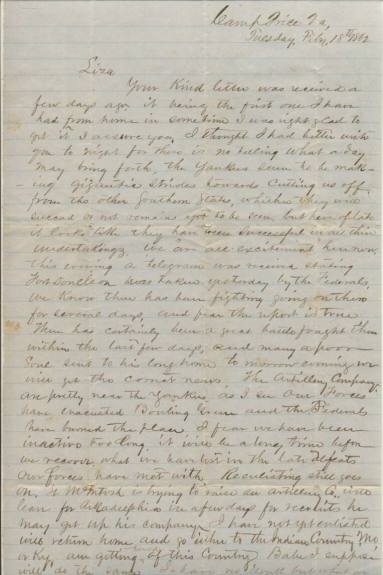 Camp Price Va,
Tuesday Feby, 18th 1862
Liza
Your Kind letter was received a
few days ago it being the first one I have
had from home in sometime I was right glad to
get it I assure you, I thought I had better write
you to night for there is no telling what a day
may bring forth, the Yankees seem to be mak-
-ing gigantic strides towards cutting us off
from the other Southern States, whether they will
succeed or not remains yet to be seen, but here of late
it looks like they have been successful in all their
undertakings, We are all excitement here now,
this evening a telegram was received stating
Fort Donelson was taken yesterday by the Federals,
we know there has been fighting going on there
for several days, and fear the report is true
There has certainly been a great battle fought there
within the last few days, and many a poor
Soul sent to his long home to morrow evening we
will get the correct news. The Artillery Company
are pretty near the Yankies, as I see our forces
have evacuated Bowling Green and the Federals
have burned the place I fear we have been
inactive too long it will be a long time before
we recover what we have lost in the late defeats
our forces have met with, Recruiting still goes
on, McIntosh is trying to raise an Artillery Co, will
leave for Arkadelphia in a few days for recruits he
may get up his company I have not yet enlisted
will return home and go either to the Indian Country, Mo
or Ky, am getting of this Country, I suppose
will do the same I have no doubt but what